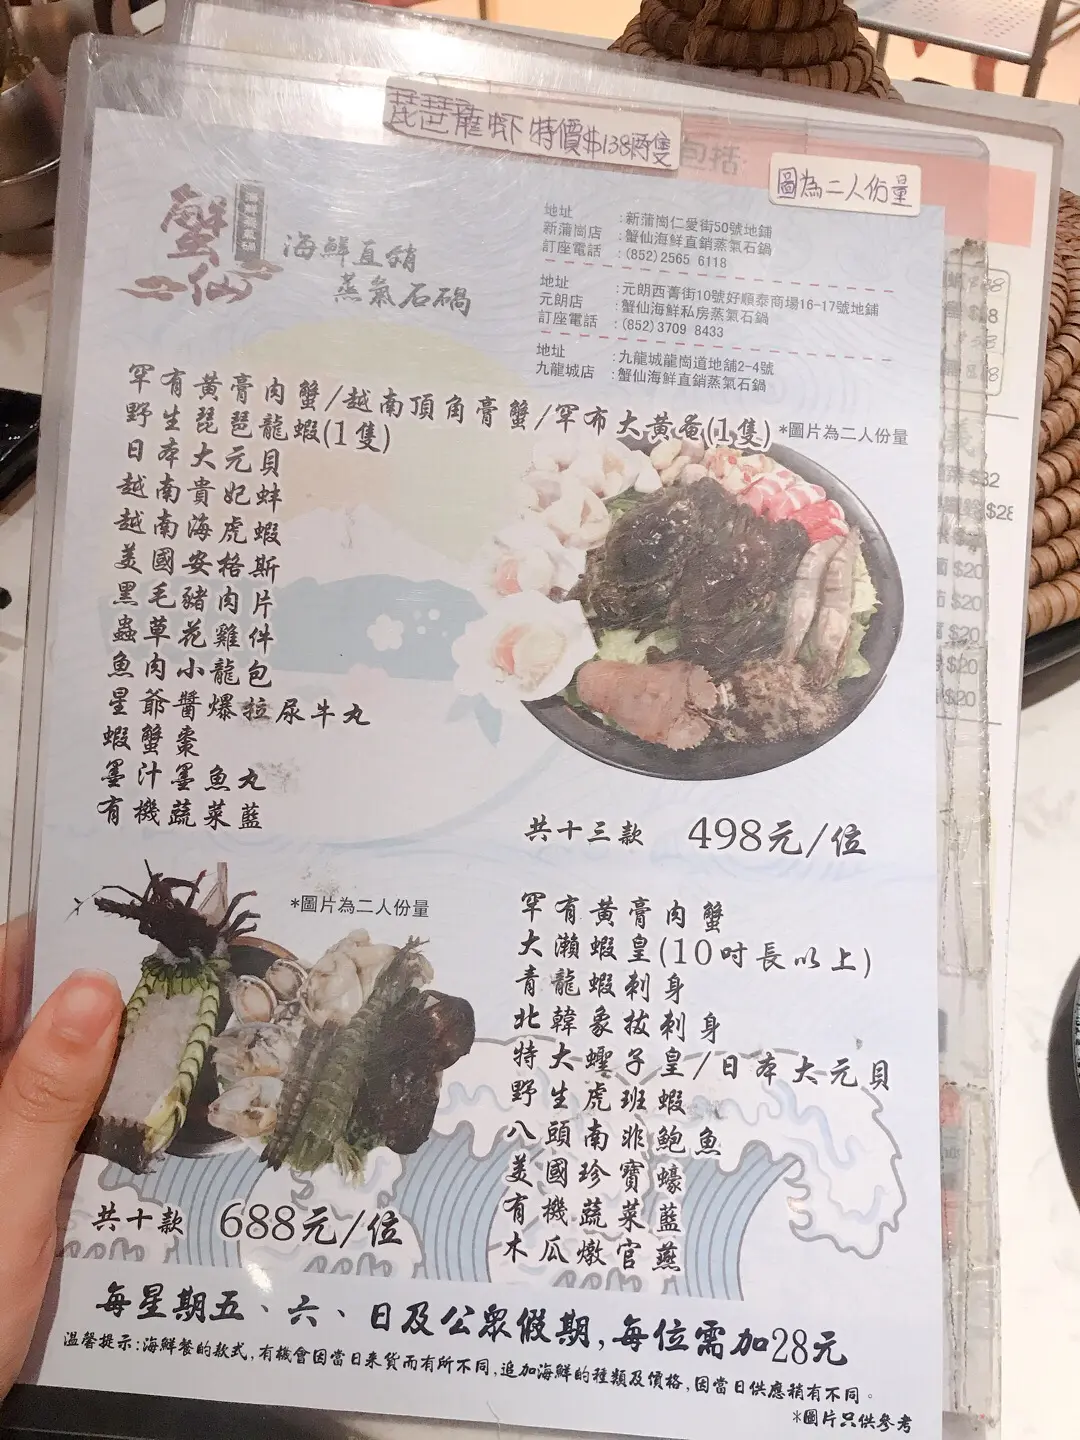 琵琶龍虾 特價$138兩隻
包括
圖為二人份量
蟹仙
海鮮直銷
蒸氣石鍋
地址 :新蒲崗仁愛街50號地鋪
新蒲崗店 :蟹仙海鮮直銷蒸氣石鍋
訂座電話 :(852)2565 6118
地址 :元朗西菁街10號好順泰商場16-17號地鋪
元朗店 :蟹仙海鮮私房蒸氣石鍋
訂座電話 :(852)3709 8433
地址 :九龍城龍崗道地舖2-4號
九龍城店 :蟹仙海鮮直銷蒸氣石鍋
罕有黃膏肉蟹/越南頂角膏蟹/罕布大黃奄(1隻)
*圖片為二人份量
野生琵琶龍蝦(1隻)
日本大元貝
越南貴妃蚌
越南海虎蝦
美國安格斯
黑毛豬肉片
蟲草花雞件
魚肉小龍包
星爺醬爆拉尿牛丸
蝦蟹棗
墨汁墨魚丸
有機蔬菜藍
共十三款 498元/位
*圖片為二人份量
罕有黃膏肉蟹
大瀨蝦皇(10吋長以上)
青龍蝦刺身
北韓象拔刺身
特大蟶子皇/日本大元貝
野生虎班蝦
八頭南非鮑魚
美國珍寶蠔
有機蔬菜藍
木瓜燉官燕
共十款 688元/位
每星期五、六、日及公眾假期,每位需加28元
溫馨提示:海鮮餐的款式,有機會因當日來貨而有所不同,追加海鮮的種類及價格,因當日供應稍有不同。
*圖片只供參考
$28
$20
$20
$20
$20
$20